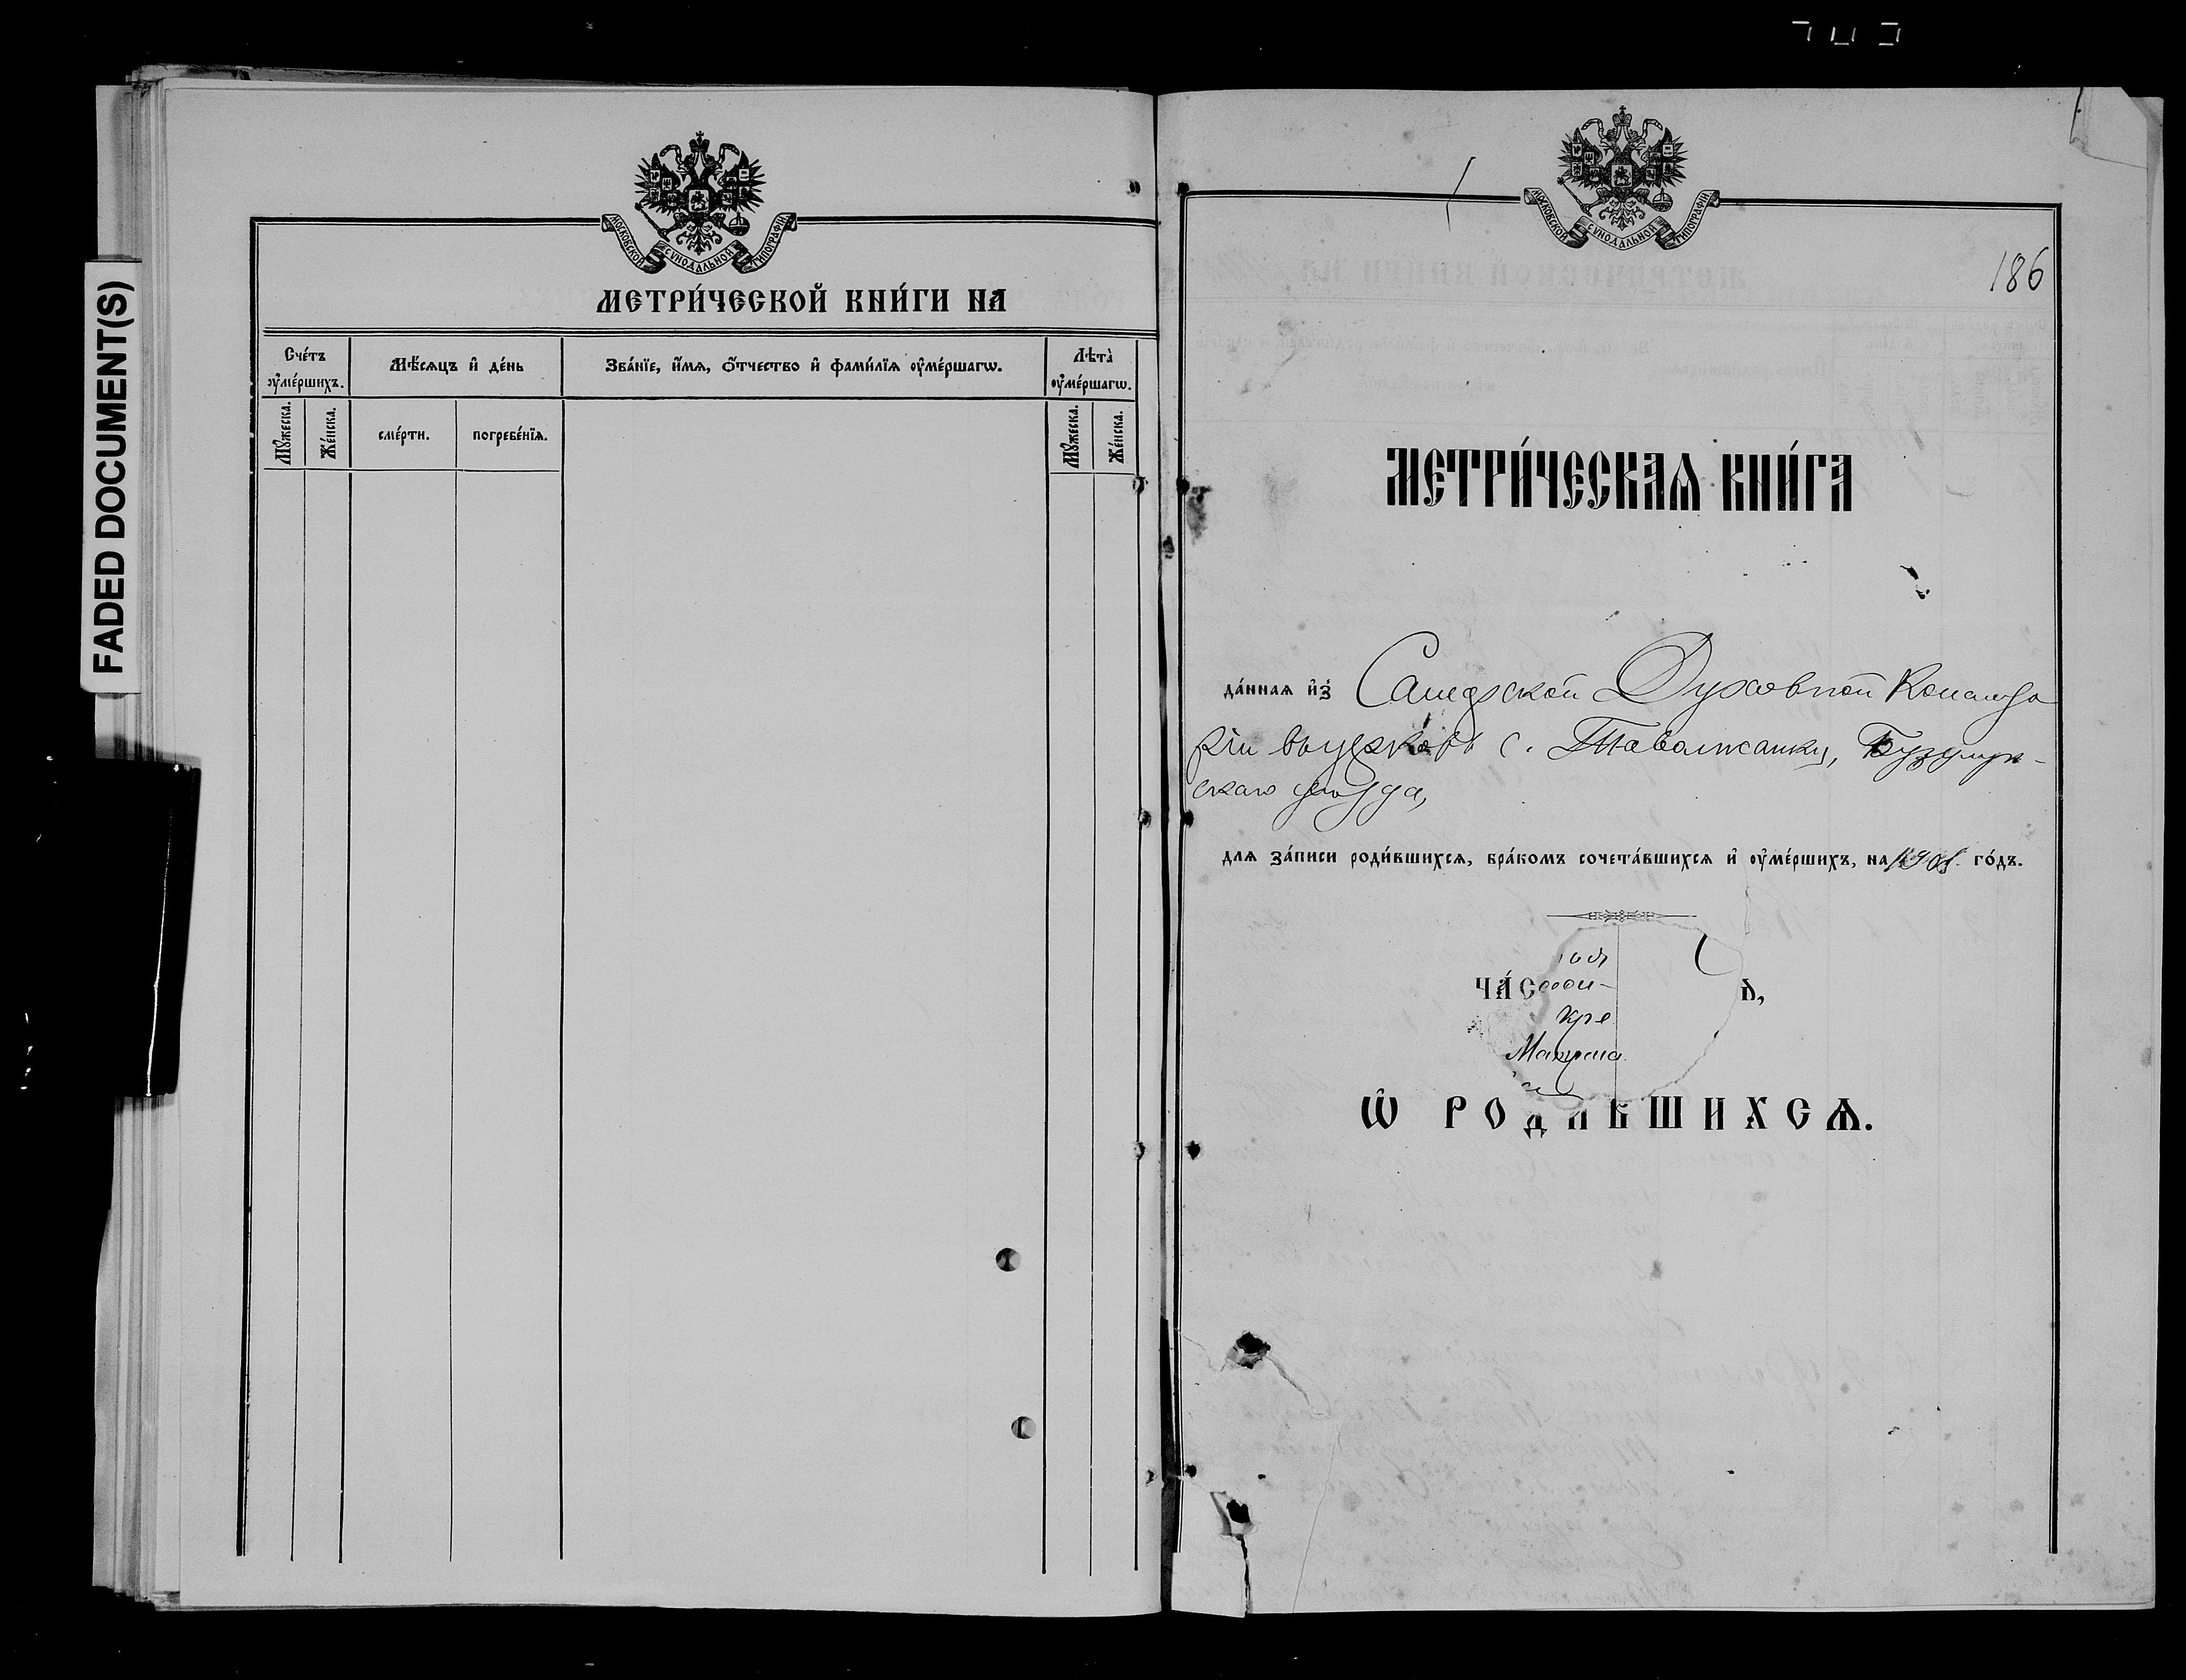 FADED DOCUMENT(S)
МОСКОВСКОЙ СУНОДАЛЬНОЙ ТИПОГРАФІИ
МЕТРИ́ЧЕСКОЙ КНИ́ГИ НА
Сче́тъ ᲂу҆ме́ршихъ.
Мѣ́сяцъ и҆ де́нь
Зва́нїе, и҆́мя, ѻ҆́тчество и҆ фами́лїя ᲂу҆ме́ршагѡ.
Лѣта̀ ᲂу҆ме́ршагѡ.
Мꙋ́жеска.
Же́нска.
сме́рти.
погребе́нїя.
Мꙋ́жеска.
Же́нска.
МОСКОВСКОЙ СУНОДАЛЬНОЙ ТИПОГРАФІИ
186
МЕТРИ́ЧЕСКАѦ КНИ́ГА
да́нная и҆з̾ Самарской Духовной Консисто
ріи въ церковь с. Таволжанки, Бузулук-
скаго уѣзда,
для за́писи роди́вшихся, бра́комъ сочета́вшихся и҆ ᲂу҆ме́ршихъ, на 1901 го́дъ.
ЧА́С
кре
Ѡ҆ РОДИВШИХСѦ.